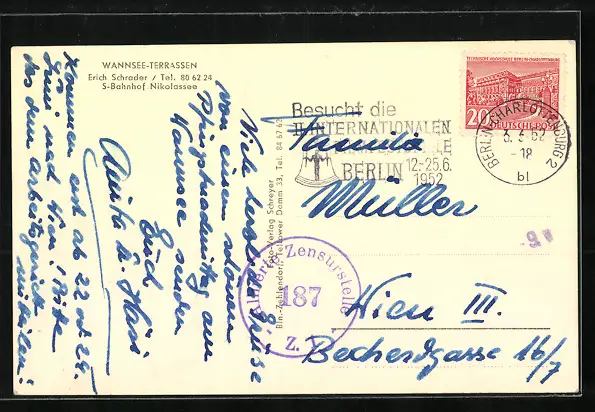 WANNSEE-TERRASSEN
Erich Schrader / Tel. 80 62 24
S-Bahnhof Nikolassee
Viele herzliche Grüße
von einem schönen
Pfingstnachmittag am
Wannsee senden
Euch
Anita u. Hasi
Kommen erst ab 22 od 24.
Juni nach Wien. Bitte
das dem Arbeitsgericht
mitteilen!
Foto-Verlag Schreyer
Bln.-Zehlendorf, Teltower Damm 33, Tel. 84 67 63
TECHNISCHE HOCHSCHULE BERLIN-CHARLOTTENBURG
20
DEUTSCHE POST
Besucht die
II. INTERNATIONALEN
BERLIN 12.-25.6.
1952
BERLIN-CHARLOTTENBURG 2
-18
bl
Familie
Müller
Wien III.
Bechardgasse 16/7
Alliierte Zensurstelle
187
Z.